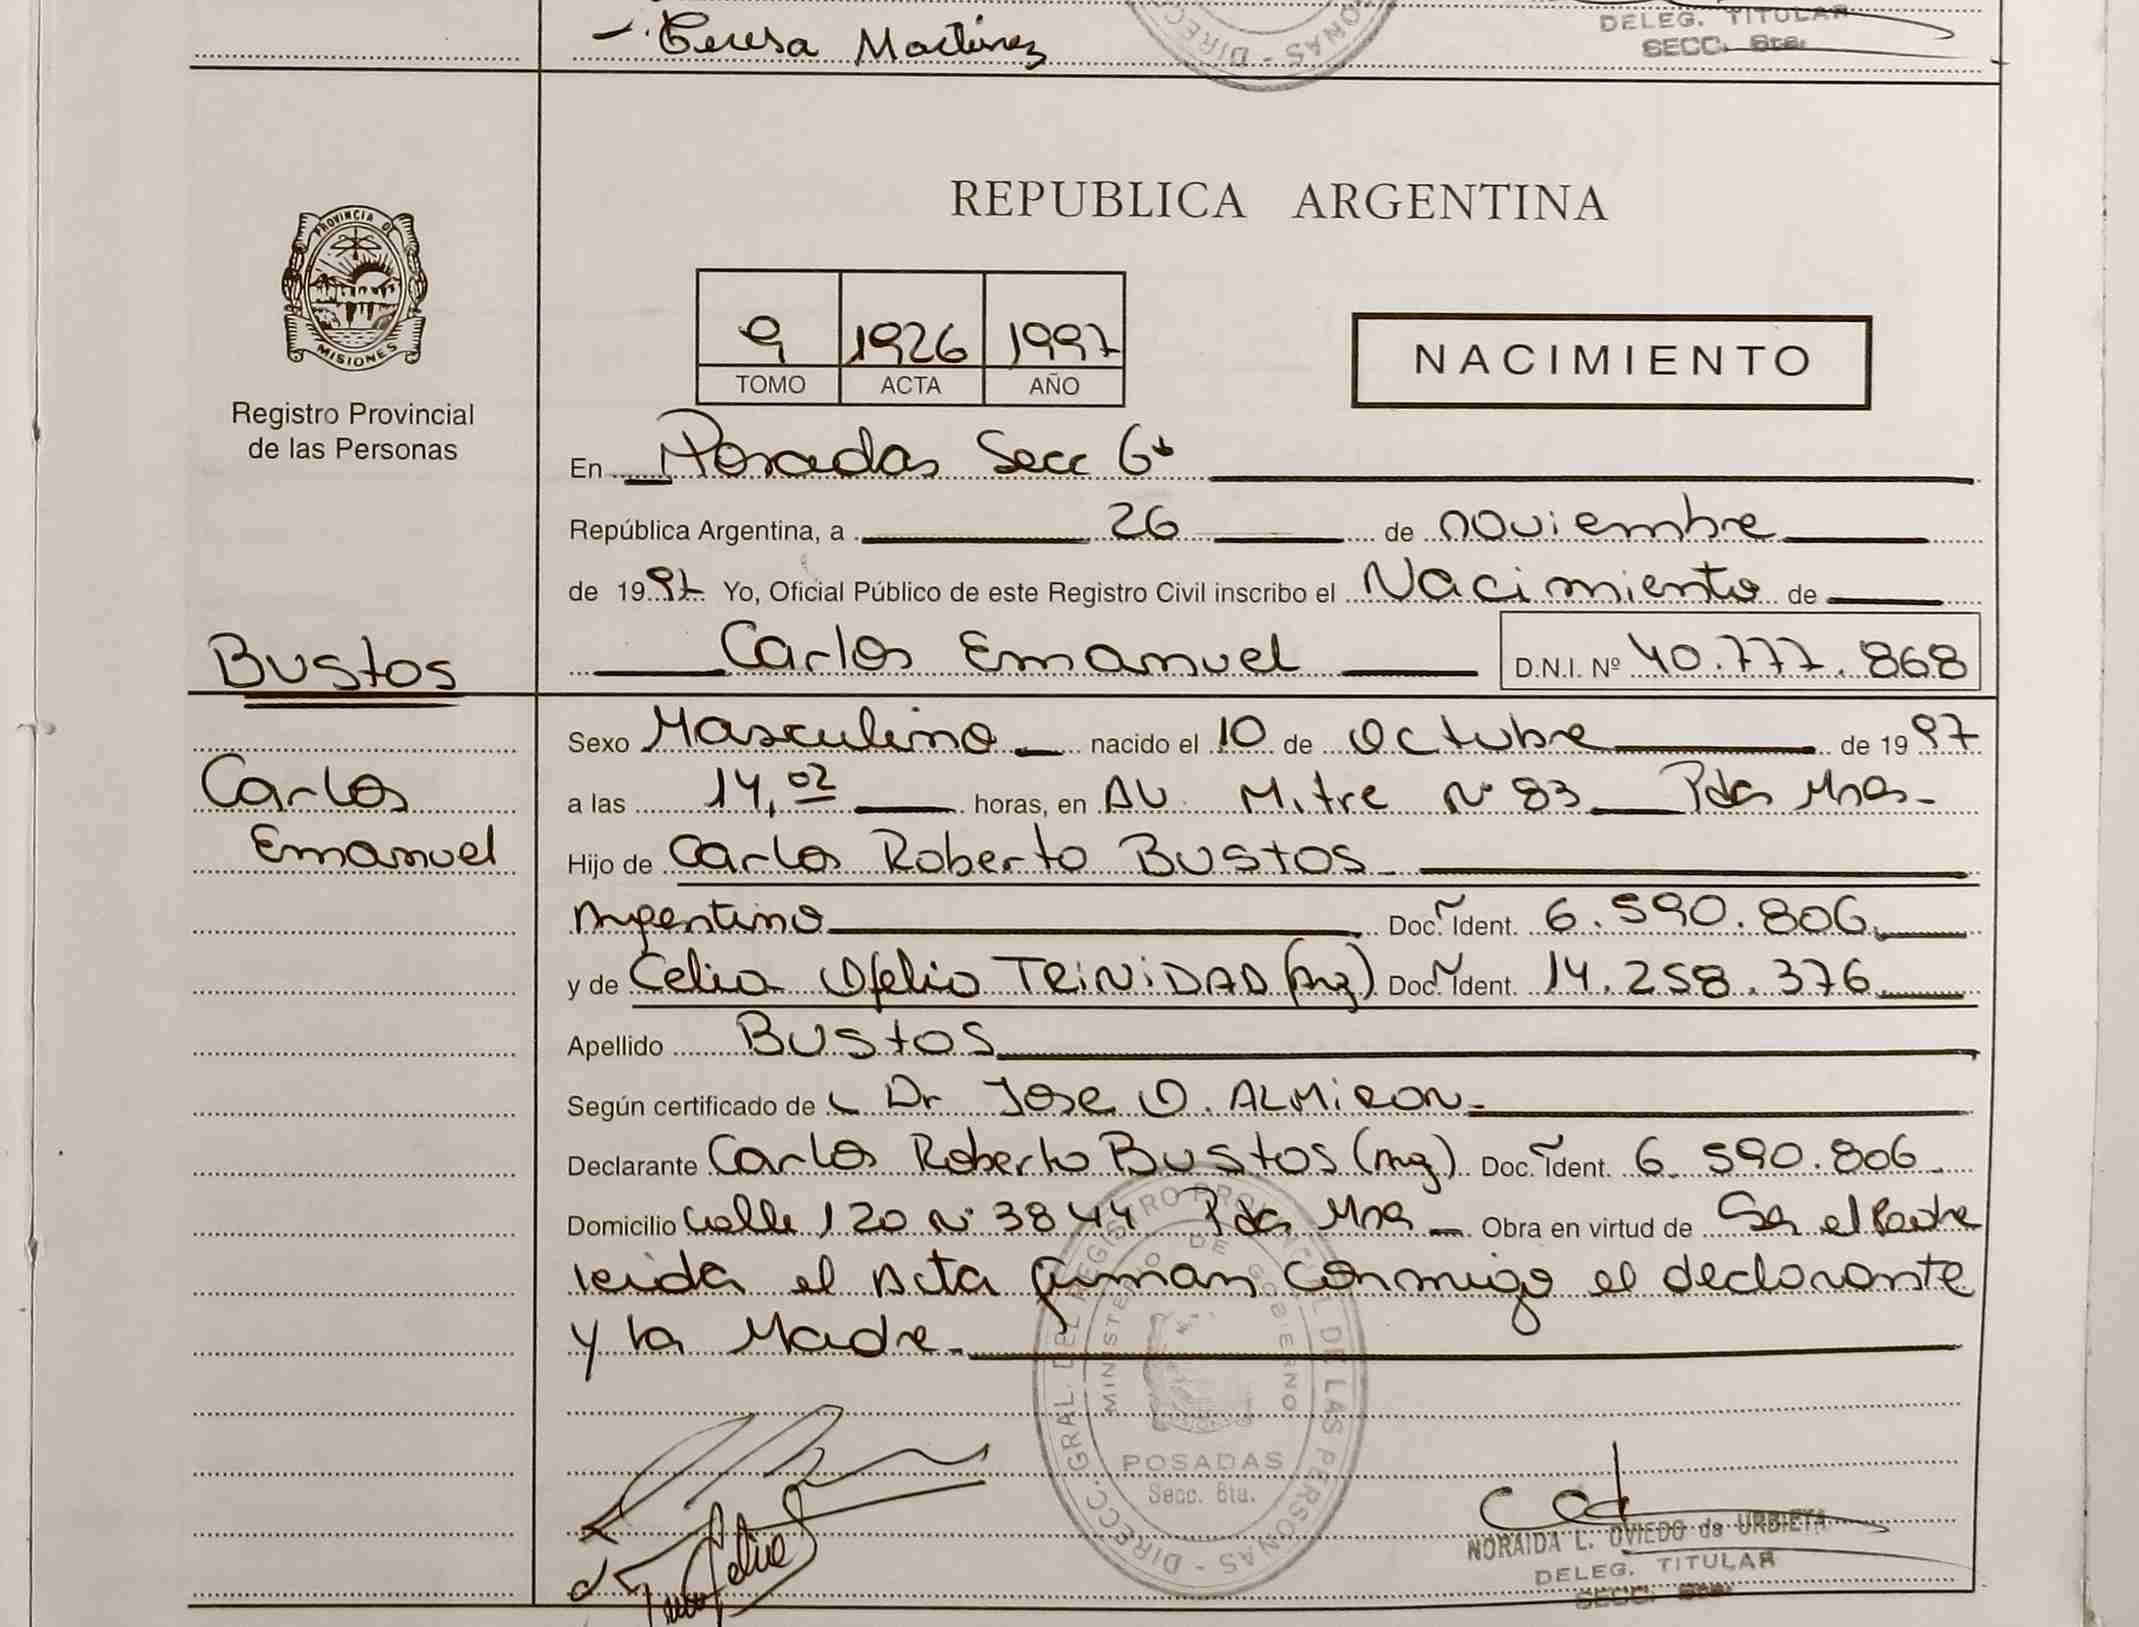 Teresa Martinez
DELEG. TITULAR
SECC. 6ta.
PROVINCIA DE
MISIONES
Registro Provincial
de las Personas
REPUBLICA ARGENTINA
9 1926 1997
TOMO ACTA AÑO
NACIMIENTO
En Posadas Secc 6ª
República Argentina, a 26 de noviembre
de 1997 Yo, Oficial Público de este Registro Civil inscribo el Nacimiento de
Bustos
Carlos Emanuel D.N.I. Nº 40.777.868
Carlos
Emanuel
Sexo Masculino nacido el 10 de Octubre de 1997
a las 14,02 horas, en AV. Mitre Nº 83 Pdas Mnes
Hijo de Carlos Roberto BUSTOS
Argentino Doc. Ident. 6.590.806
y de Celia Ofelia TRINIDAD (Arg) Doc. Ident. 14.258.376
Apellido BUSTOS
Según certificado de Dr Jose O. ALMIRON
Declarante Carlos Roberto BUSTOS (Arg) Doc. Ident. 6.590.806
Domicilio Calle 120 Nº 3844 Pdas Mnes Obra en virtud de Ser el Padre
leida el Acta firman conmigo el declarante
y la Madre.
DIRECC. GRAL. DEL REGISTRO PROVINCIAL DE LAS PERSONAS
MINISTERIO DE GOBIERNO
POSADAS
Secc. 6ta.
NORAIDA L. OVIEDO de URBIETA
DELEG. TITULAR
SECC. 6ta.